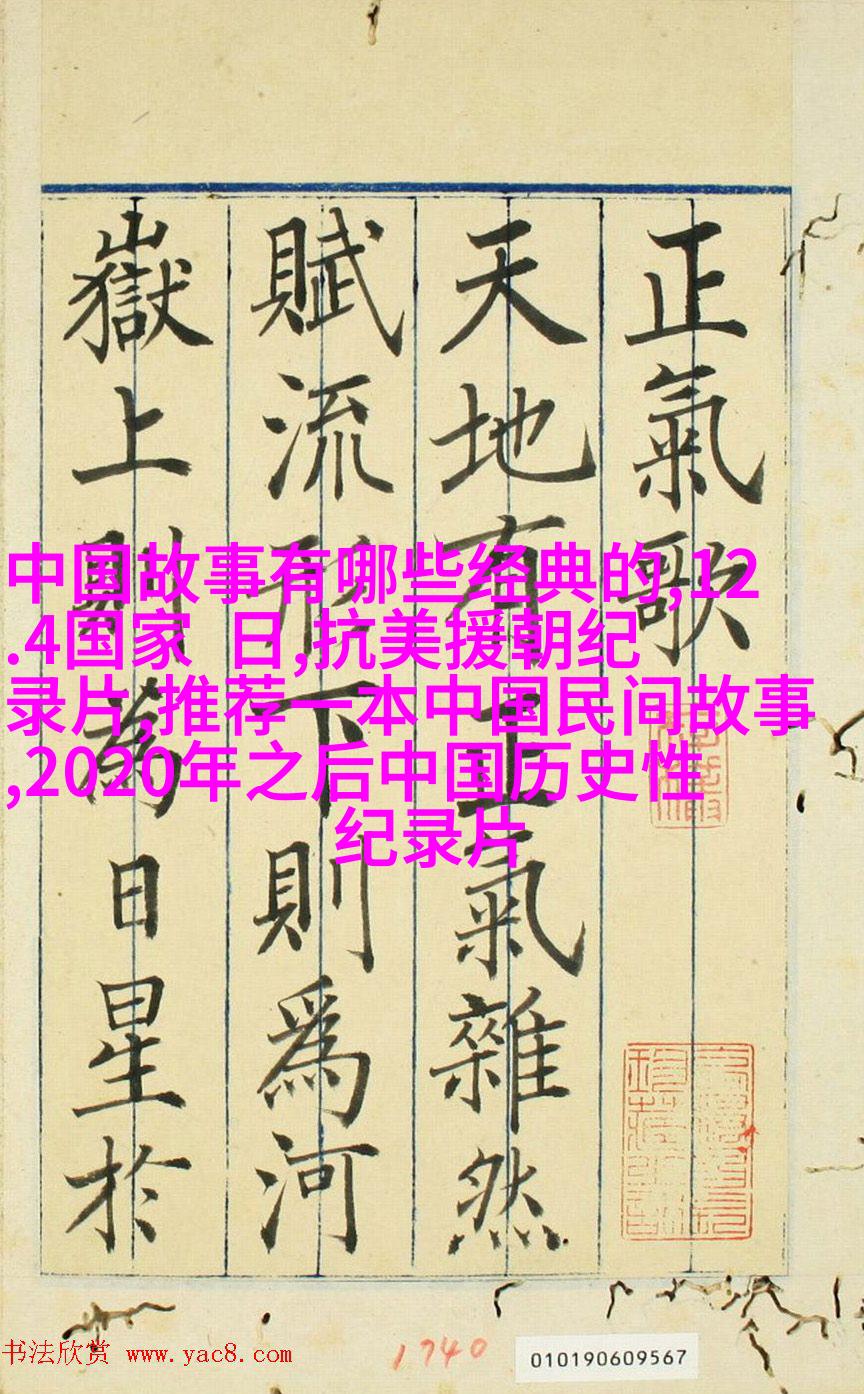 正氣歌
天地有正氣雜然
賦流形下則爲河
嶽上則為日星於
中国故事有哪些经典的,12
.4国家 日,抗美援朝纪
录片,推荐一本中国民间故事
,2020年之后中国历史性
纪录片
书法欣赏 www.yac8.com
1740
010190609567